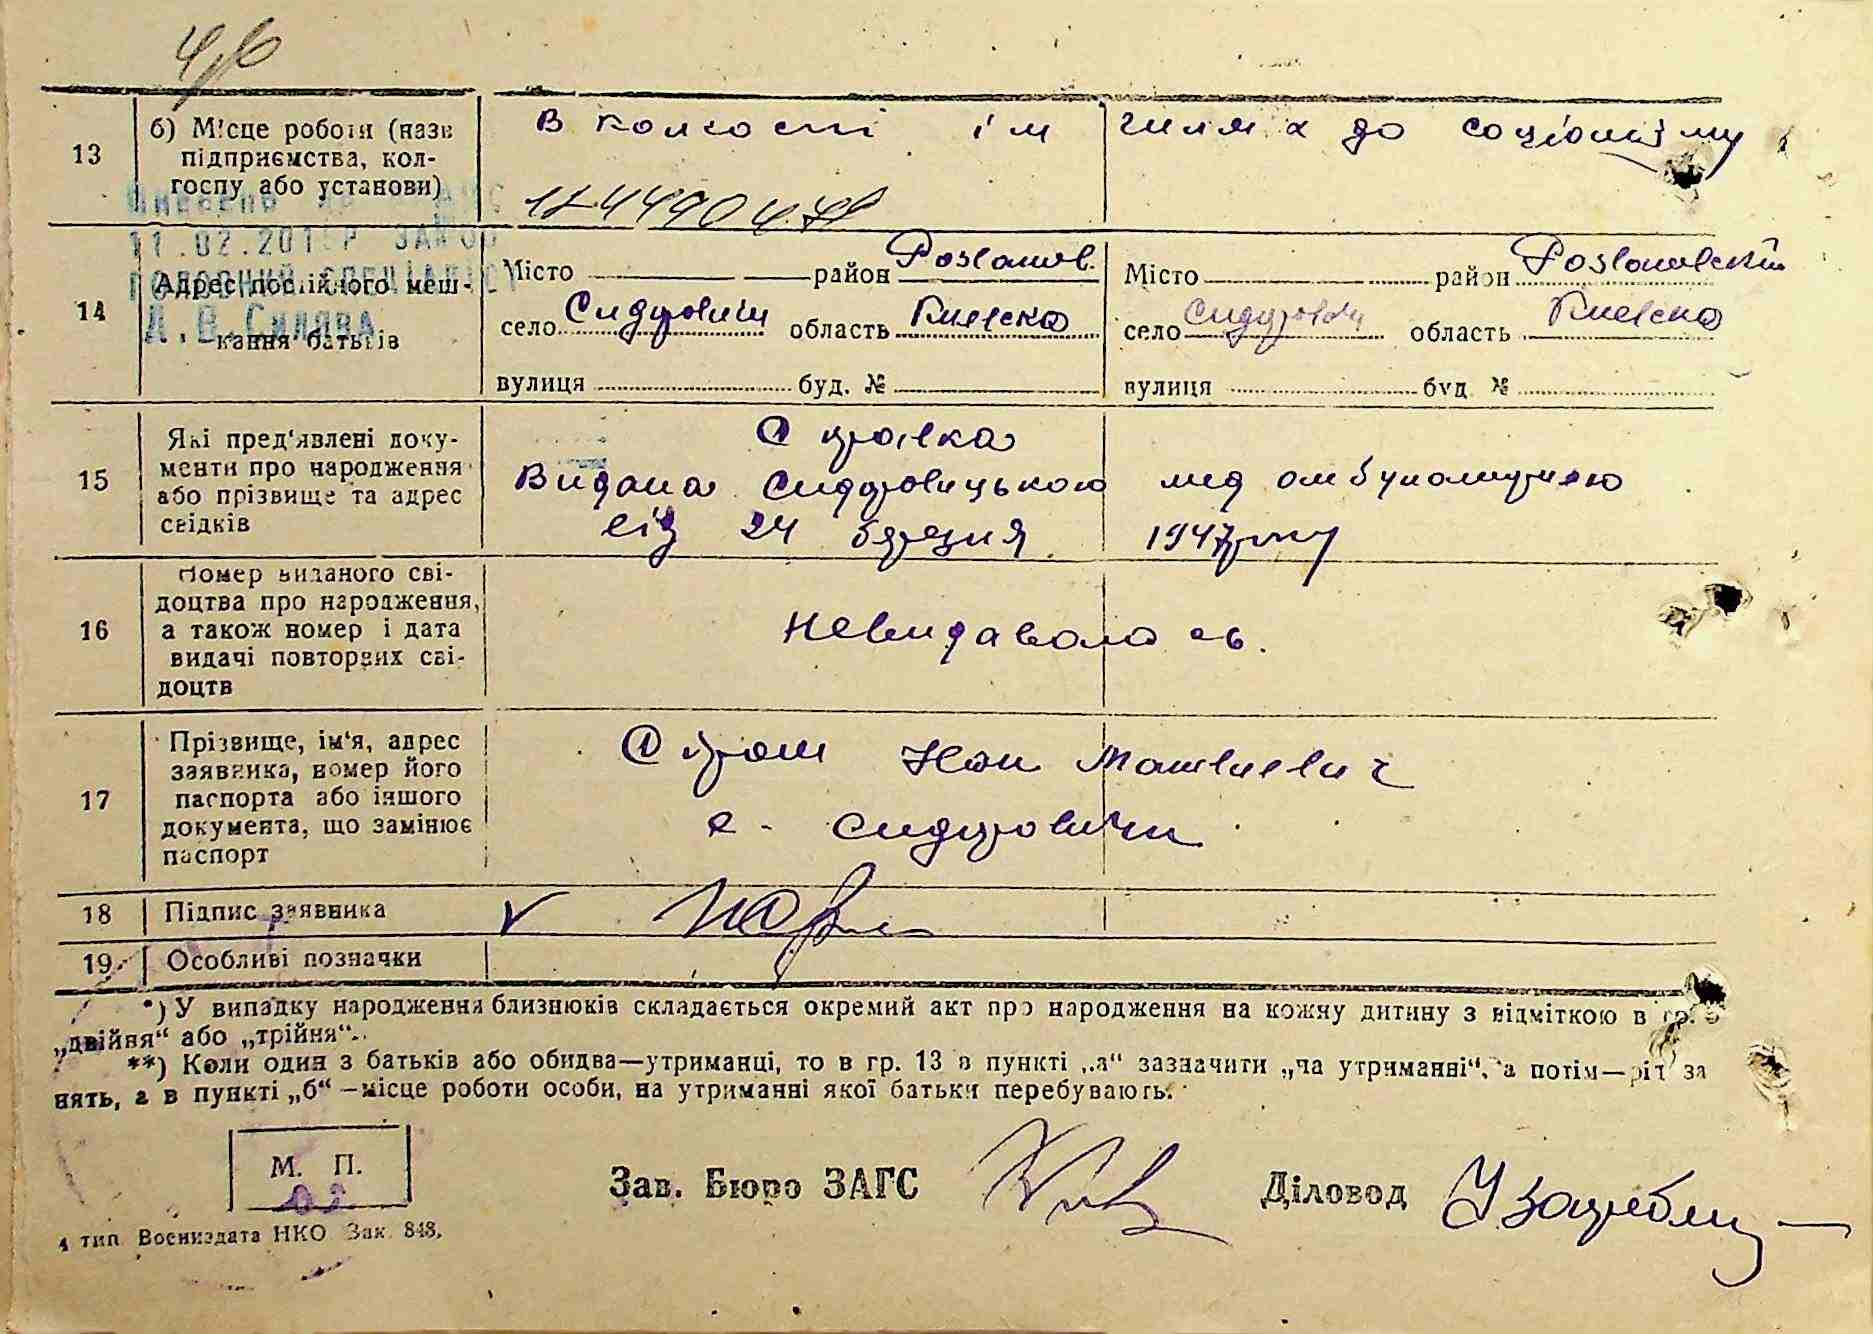 13
б) Місце роботи (назв
підприємства, кол-
госпу або установи)
В колхості ім шлях до соціолізму
11.02.201
14
Адрес постійного меш-
кання батьків
Місто район Розважів.
село Сидоровичі область Киевска
вулиця буд. №
Місто район Розважевский
село Сидоровичі область Киевска
вулиця буд №
15
Які пред'явлені доку-
менти про народження
або прізвище та адрес
свідків
Справка
Видана Сидоровицькою мед амбулаторією
від 24 березня 1947 року
16
Номер виданого сві-
доцтва про народження,
а також номер і дата
видачі повторних сві-
доцтв
Невидавалось.
17
Прізвище, ім'я, адрес
заявника, номер його
паспорта або іншого
документа, що замінює
паспорт
Матвиевич
с. Сидоровичи
18 Підпис заявника
19 Особливі позначки
*) У випадку народження близнюків складається окремий акт про народження на кожну дитину з відміткою в гр.
„двійня“ або „трійня“.
**) Коли один з батьків або обидва—утриманці, то в гр. 13 в пункті „а“ зазначити „на утриманні“, а потім—рід за
нять, а в пункті „б“ —місце роботи особи, на утриманні якої батьки перебувають.
М. П.
Зав. Бюро ЗАГС Діловод
4 тип Воениздата НКО Зак. 848.